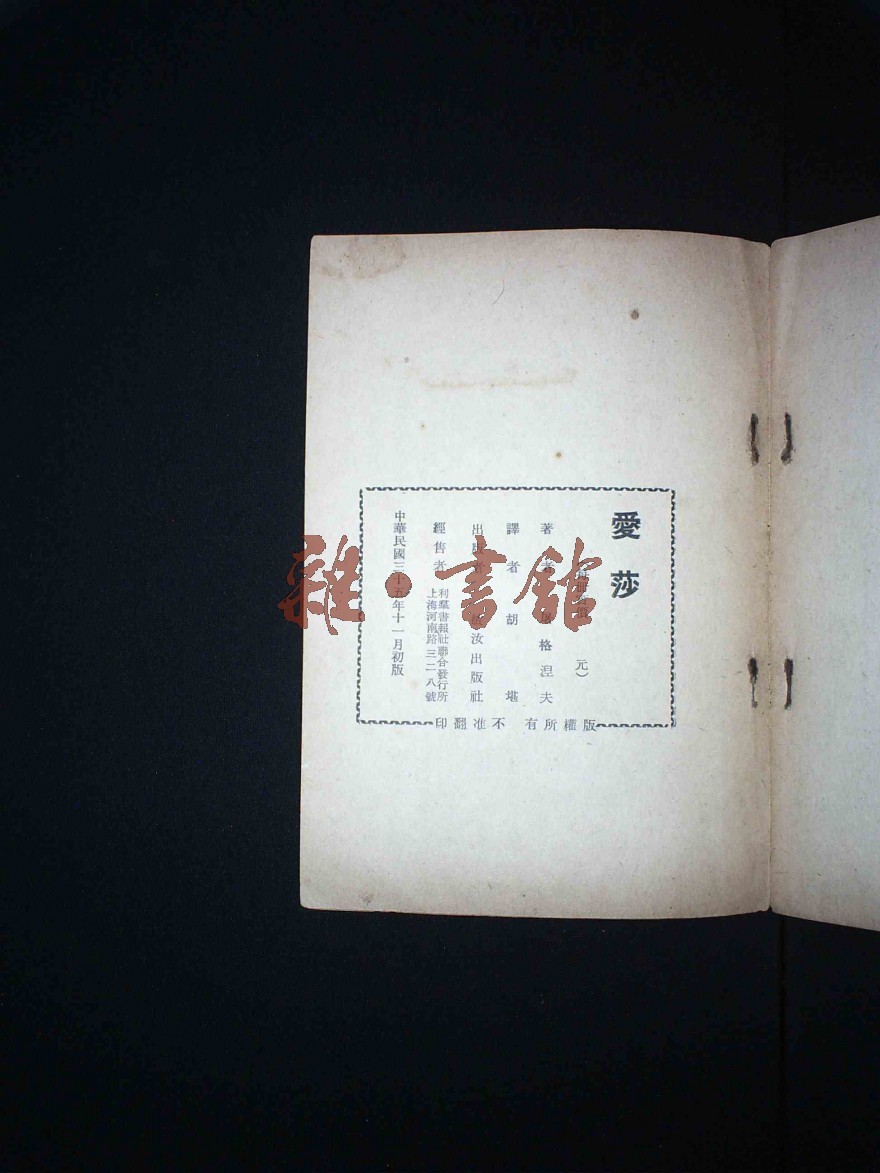 愛莎
元）
著者 格涅夫
譯者 胡堪
出版者 汝出版社
經售者 利羣書報社聯合發行所
上海河南路三二八號
中華民國三十五年十一月初版
版權所有 不准翻印
雜·書館